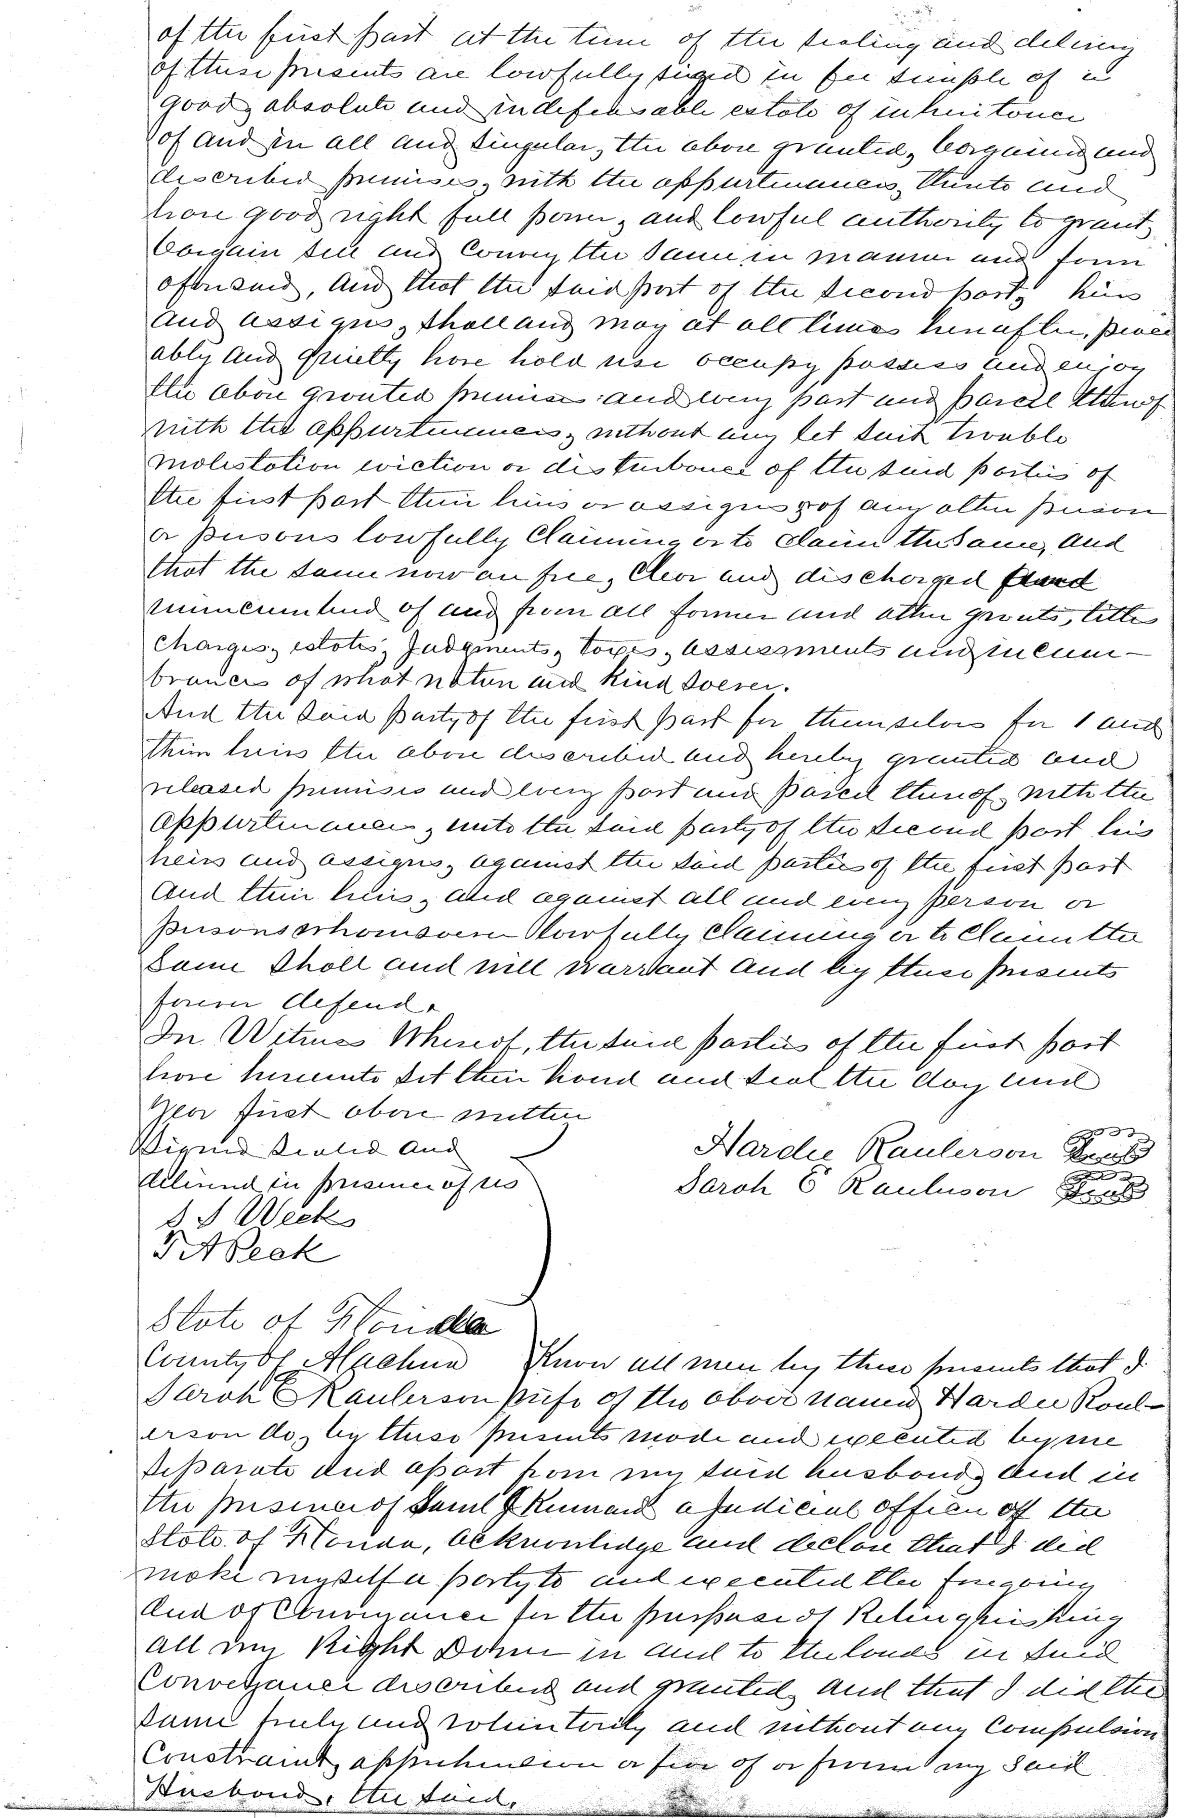 of the first part at the time of the sealing and delivery
of these presents are lawfully siezed in fee simple of a
good absolute and indefeasable estate of inheritance
of and in all and singular, the above granted, bargained and
described premises, with the appurtenances, thereto and
have good right full power, and lawful authority to grant,
bargain sell and convey the same in manner and form
aforesaid, And that the said part of the second part, heirs
and assigns, shall and may at all times hereafter, peace
ably and quietly have hold use occupy possess and enjoy
the above granted premises and every part and parcel thereof
with the appurtenances, without any let suit trouble
molestation eviction or disturbance of the said parties of
the first part their heirs or assigns or of any other person
or persons lawfully claiming or to claim the same, and
that the same now are free, clear and discharged and
unincumbered of and from all former and other grants, titles
charges, estates, Judgments, taxes, assessments and incum-
brances of what nature and kind soever.
And the said party of the first part for themselves for 1 and
their heirs the above described and hereby granted and
released premises and every part and parcel thereof, with the
appurtenances, unto the said party of the second part his
heirs and assigns, against the said parties of the first part
and their heirs, and against all and every person or
persons whomsoever lawfully claiming or to claim the
same shall and will warrant and by these presents
forever defend.
In Witness Whereof, the said parties of the first part
have hereunto set their hand and seal the day and
year first above written
Signed Sealed and
delivered in presence of us
Hardee Raulerson Seal
Sarah E Raulerson Seal
S S Weeks
T A Peek
State of Florida
County of Alachua Know all men by these presents that I
Sarah E Raulerson wife of the above named Hardee Raul-
erson do, by these presents made and executed by me
separate and apart from my said husband, and in
the presence of Saml J Kennard a Judicial officer of the
State of Florida, acknowledge and declare that I did
make myself a party to and executed the foregoing
deed of Conveyance for the purpose of Relinquishing
all my Right Dower in and to the lands in said
Conveyance described and granted, and that I did the
same freely and voluntarily and without any Compulsion
Constraint, apprehension or fear of or from my said
Husband, the said.